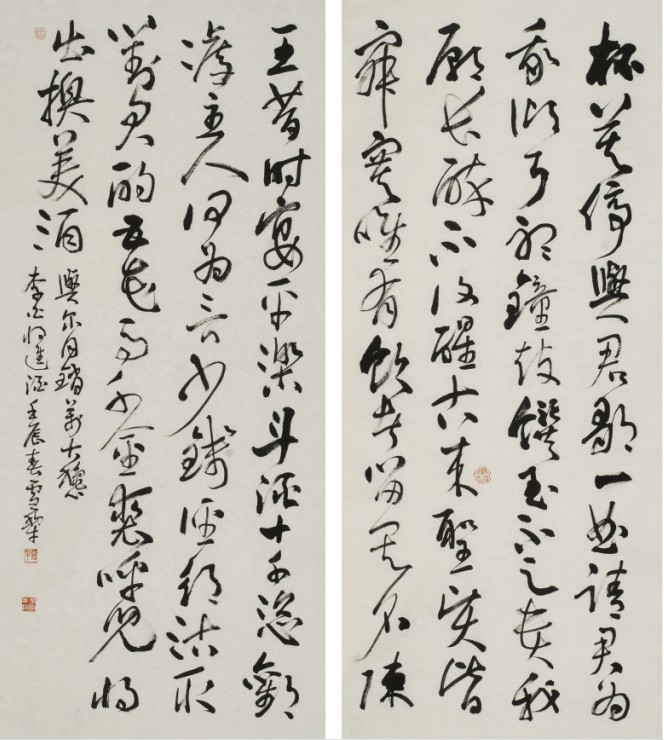 杯莫停與君歌一曲請君為
我側耳聽鐘鼓饌玉不足貴
願長醉不復醒古來聖賢皆
寂寞唯有飲者留其名陳
王昔時宴平樂斗酒十千恣歡
謔主人何為言少錢徑須沽取
對君酌五花馬千金裘呼兒將
出換美酒
與爾同銷萬古愁
李白將進酒壬辰春雪